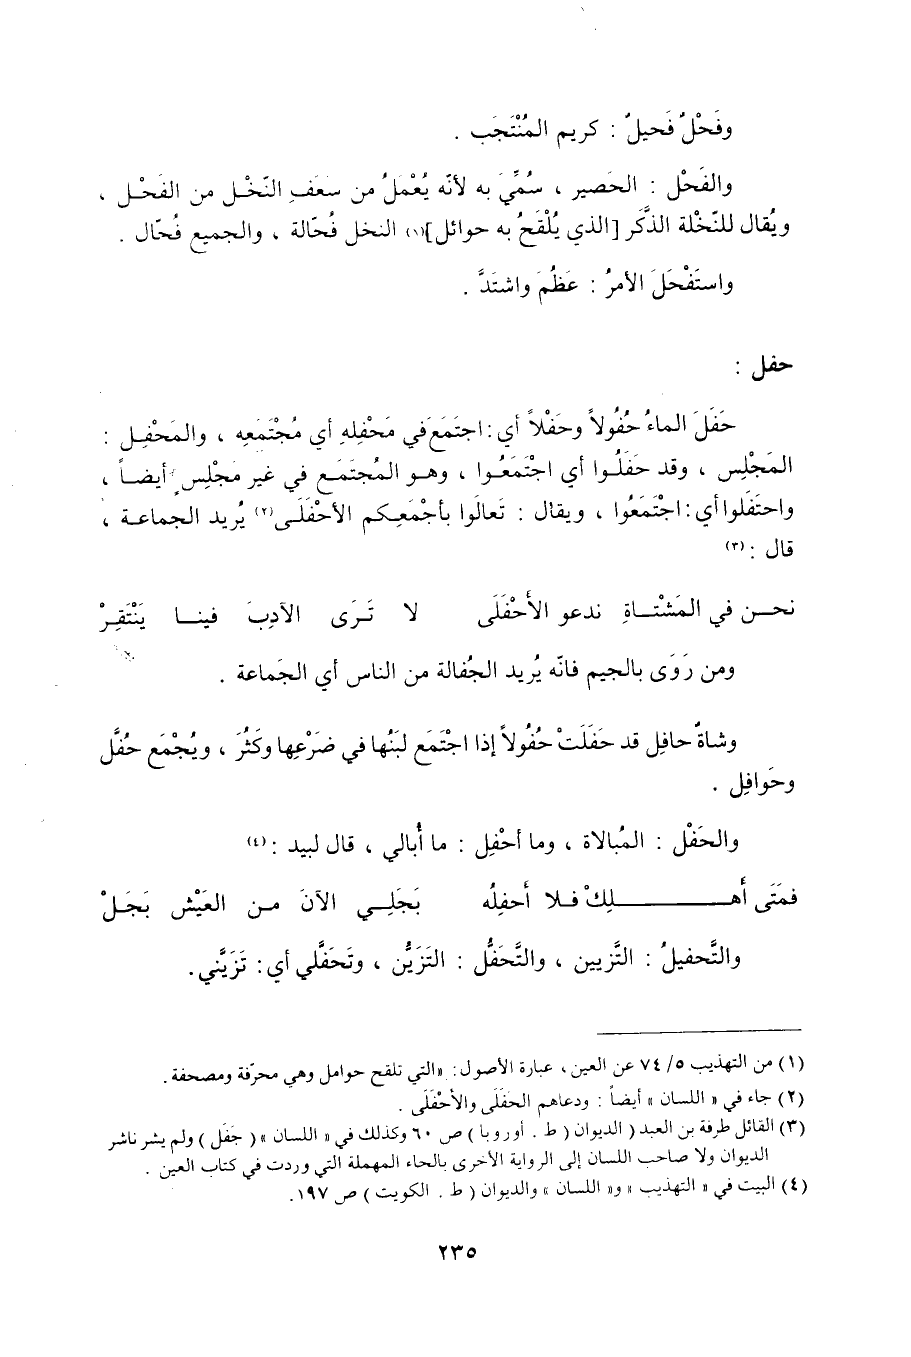 وفَحْلٌ فَحيلٌ : كريم المُنْتَجَب .
والفَحْل : الحَصير ، سُمِّيَ به لأنّه يُعْمَلُ من سعَفِ النَّخْل من الفَحْل ،
ويُقال للنّخْلة الذَّكَر [الذي يُلْقَحُ به حوائل](١) النخل فُحّالة ، والجميع فُحّال .
واستَفْحَلَ الأمرُ : عَظُمَ واشتَدَّ .
حفل :
حَفَلَ الماءُ حُفُولاً وحَفْلاً أي : اجتَمَعَ في مَحْفِلِهِ أي مُجْتَمَعِه ، والمَحْفِل :
المَجْلِس ، وقد حَفَلُوا أي اجْتَمَعُوا ، وهو المُجتَمَع في غير مَجْلِسٍ أيضاً ،
واحتَفَلوا أي : اجتَمَعُوا ، ويقال : تَعالَوا بأجْمَعِكم الأحْفَلَى(٢) يُريد الجماعة ،
قال :(٣)
نحن في المَشْتاةِ ندعو الأَحْفَلَى لا تَرَى الآدِبَ فينا يَنْتَقِرْ
ومن رَوَى بالجيم فانّه يُريد الجُفالة من الناس أي الجَماعة .
وشاةٌ حافِل قد حَفَلَتْ حُفُولاً إذا اجتَمَع لبَنُها في ضَرْعِها وكَثُرَ ، ويُجْمَع حُفَّل
وحَوافِل .
والحَفْل : المُبالاة ، وما أحْفِل : ما أُبالي ، قال لبيد :(٤)
فمَتَى أهلِكْ فلا أحفِلُه بَجَلِي الآنَ من العَيْش بَجَلْ
والتَّحفيلُ : التَّزيين ، والتَّحَفُّل : التَزَيُّن ، وتَحَفَّلي أي : تَزَيَّني .
(١) من التهذيب ٥/ ٧٤ عن العين ، عبارة الأصول : «التي تلقح حوامل وهي محرّفة ومصحفة .
(٢) جاء في « اللسان » أيضاً : ودعاهم الحَفَلَى والأحْفَلَى .
(٣) القائل طرفة بن العبد ( الديوان ( ط . أوروبا ) ص ٦٠ وكذلك في « اللسان » ( جفل ) ولم يشر ناشر
الديوان ولا صاحب اللسان إلى الرواية الأخرى بالحاء المهملة التي وردت في كتاب العين .
(٤) البيت في « التهذيب » و« اللسان » والديوان ( ط . الكويت ) ص ١٩٧ .
٢٣٥